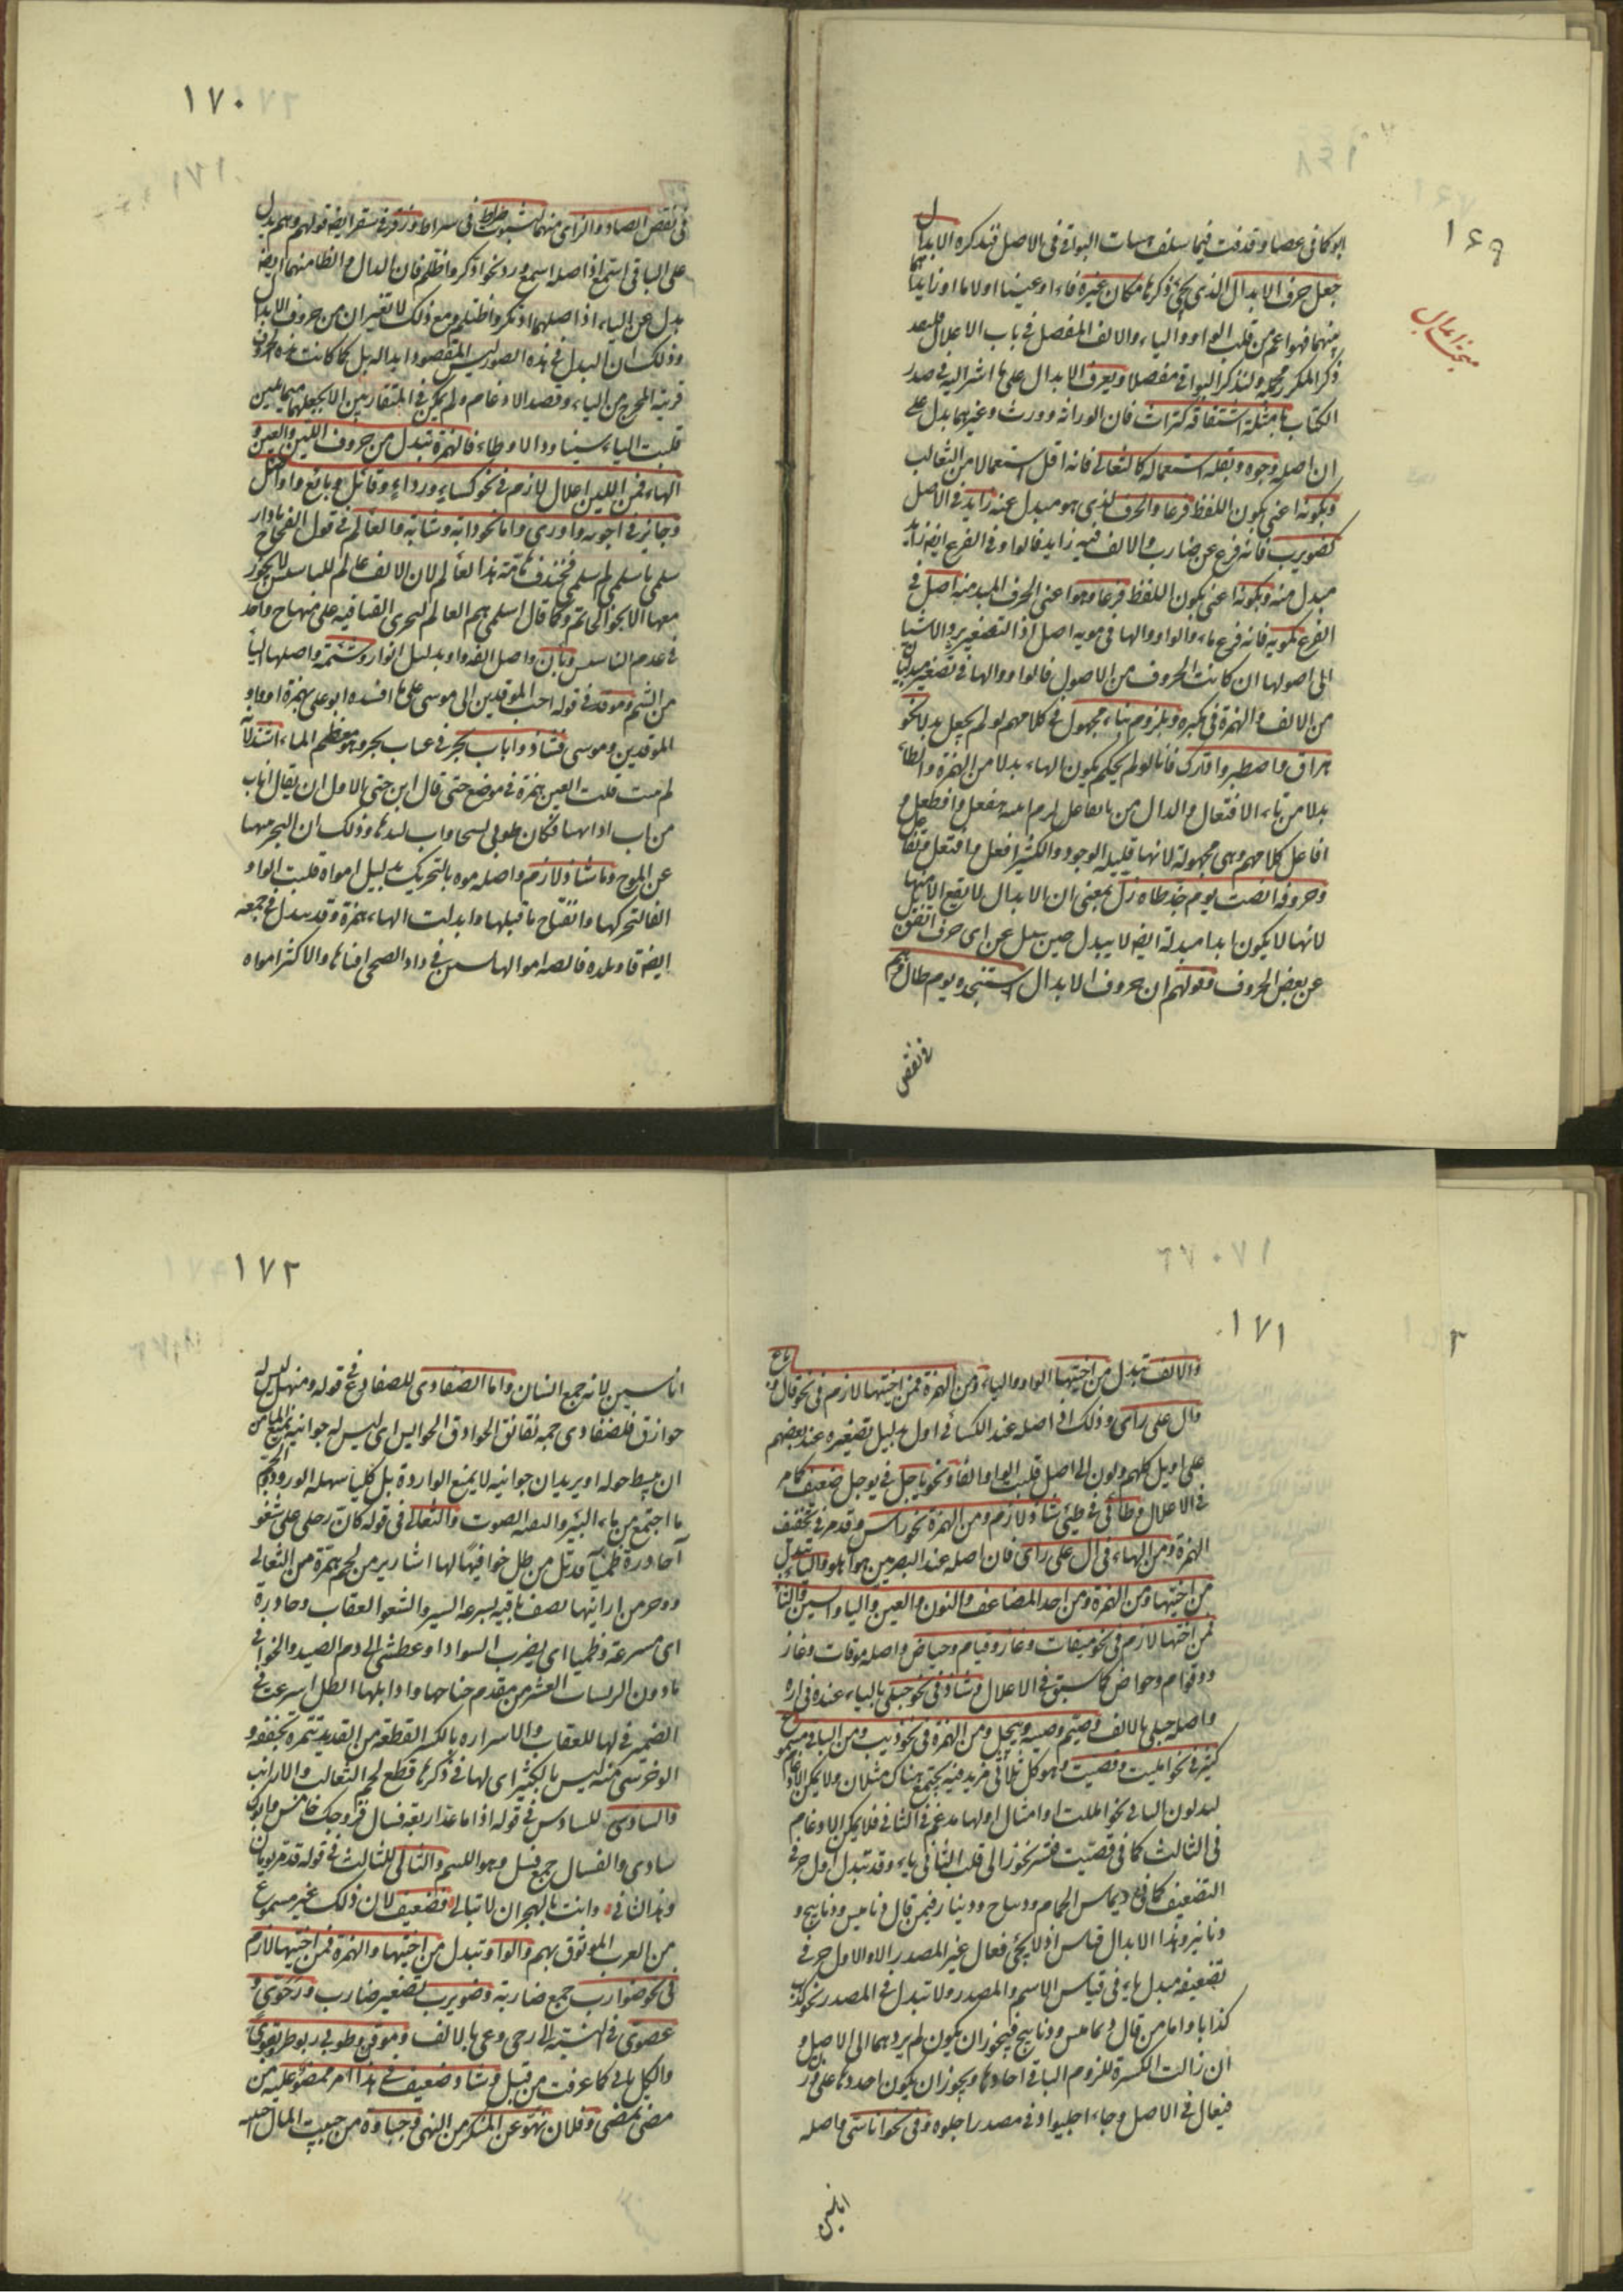 ١٦٩
مبحث ابدال
ابو كما في عصا وقد فت فيما سلف اسات البواقي في الاصل فنذكره الابدال
جعل حرف الابدال الذي يجئ ذكرها مكان غيره فاء او عينا او لاما او زايدا
منهما فهو اعم من قلب الواو والياء والالف المفصل في باب الاعلال فلبعد
ذكر المكرر مجملا ولنذكر البواقي مفصلا ويعرف الابدال على ما اشرنا اليه في صدر
الكتاب بامثلة اشتقاقه كتراث فان الوراثة وورث وغيرهما يدل على
ان اصله وجوه وبقلة استعماله كالثعالي فانه اقل استعمالا من الثعالب
وبكونه اعني بكون اللفظ فرعا والحرف الذي هو مبدل عنه زايد في الاصل
كضويرب فانه فرع عن ضارب والالف فيه زايد فالواو في الفرع ايضا زايد
مبدل منه وبكونه اعني بكون اللفظ فرعا وهو اعني الحرف المبدل منه اصل في
الفرع كمويه فانه فرع ماء والواو والهاء في مويه اصل اذ التصغير يرد الاشياء
الى اصولها ان كانت الحروف من الاصول فالواو والهاء في تصغير مبدلتان
من الالف والهمزة في مكبره وبلزوم بناء مجهول في كلامهم لو لم يجعل بدلا نحو
هراق واصطبر وادّارك فانا لو لم يحكم بكون الهاء بدلا من الهمزة والطاء
بدلا من تاء الافتعال والدال من تاء تفاعل لزم بناء هفعل وافطعل و
افاعل كلامهم وهي مجهولة لانها قليلة الوجود والكثير افعل وافتعل وتفاعل
وحروفه انصت يوم جد طاه زل بمعنى ان الابدال لا يقع الا منها
لانها لا يكون ابدا مبدلة ايضا لا يبدل حين يبدل عن اي حرف اتفق بل
عن بعض الحروف وقولهم ان حروف الابدال استنجده يوم طال وهم
في نقص
١٧٠
في نقص الصاد والزاي منهما لثبوت صراط في سراط وزقر في سقر ايضا قولهم وهم يدل
على الباقي استمع اذ اصله اسمع ورد نحو اذكر واظلم فان الدال والظا منهما ايضا
بدل عن التاء اذ اصلهما اذتكر واظتلم ومع ذلك لا تعتبران من حروف الابدال
وذلك ان البدل في هذه الصور ليس المقصود ابداله بل لما كانت هذه الحروف
قريبة المخرج من التاء وقصد الادغام ولم يمكن في المتقاربين الا بجعلهما متماثلين
قلبت التاء سينا ودالا وظاء فالهمزة تبدل من حروف اللين والعين و
الهاء فمن اللين اعلال لازم في نحو كساء ورداء وقائل وبائع واواصل
وجايز في اجوه واوري واما نحو دابة وشابة والعالم في قول العجاج يا دار
سلمى يا سلمى ثم اسلمى فخندف هامة هذا العألم لان الالف عالم للتأسيس لا يجوز
معها الا نحو الخاتم وكما قال اسلمى هم العالم ليجرى القافية على منهاج واحد
في عدم التأسيس وبأز واصل الفه واو بدليل ابواز وشئمة واصلها الياء
من الشيم ومؤقد في قوله احب المؤقدين الى موسى على ما انشده ابو علي بهمزة واو
المؤقدين وموسى فشاذ واباب بحر في عباب بحر وهو معظم الماء اشذ لانه
لم يثبت قلب العين همزة في موضع حتى قال ابن جني الاولى ان يقال اباب
من اب اذا تهيا فكان
عن الموج وماء شاذ لازم واصله موه بالتحريك بدليل امواه قلبت الواو
الفا لتحركها وانفتاح ما قبلها وابدلت الهاء همزة وقد يبدل في جمعه
ايضا قال وبلدة قالصة امواؤها في راد الضحى افياؤها والاكثر امواه
١٧١
والالف تبدل من اختيها الواو والياء ومن الهمزة فمن اختيها لازم في نحو قال وباع
وآل على رأى وذلك ان اصله عند الكسائي اول بدليل تصغيره عند بعضهم
على اويل كلهم يؤول الى اصل قلبت الواو الفا ونحو ياجل في يوجل ضعيف كما مر
في الاعلال وطائي في طيئي شاذ لازم ومن الهمزة نحو راس وقد مر في تخفيف
الهمزة ومن الهاء في آل على رأى فان اصله عند البصريين هو اهل والياء تبدل
من اختيها ومن الهمزة ومن احد المضاعف والنون والعين والباء والسين والثاء
فمن اختيها لازم في نحو ميقات وغاز وقيام وحياض واصله موقات وغازو
وقوام وحواض كما سبق في الاعلال وشاذ في نحو حبلى بالياء عند فزارة
واصله حبلى بالالف وصيم وصبية وييجل ومن الهمزة في نحو ذيب ومن الباقي مسموع
كثير في نحو امليت وقصيت وهو كل ثلاثي مزيد فيه يجتمع هناك مثلان ولا يمكن الادغام
لسكون الثاني نحو امللت او امثال اولها مدغم في الثاني فلا يمكن الادغام
في الثالث كما في قصيت فتستريح الى قلب الثاني ياء وقد تبدل اول حرفي
التضعيف كما في ديماس الحمام وديباج ودينار فيمن قال دماميس ودبابيج و
دنانير وهذا الابدال قياس اذ لا يجئ فعال غير المصدر الا والاول حرفي
تضعيفه مبدل ياء في قياس الاسم والمصدر ولا تبدل في المصدر نحو كذب
كذابا واما من قال دياميس وديابيج فيجوز ان يكون لم يردهما الى الاصل و
ان زالت الكسرة للزوم الياء في احادها ويجوز ان يكون احدهما على وزن
فيعال في الاصل وجاء اجليواذ في مصدر اجلوذ وفي نحو اناسى واصله
اناسين
١٧٢
اناسين لانه جمع انسان واما الضفادي للضفادع في قوله ومنهل ليس له
حوازق ولضفادى جمه نقانق الحوازق الجوانب اى ليس له جوانب تمنع الماء من
ان يبسط حوله او يريد ان جوانبه لا يمنع الواردة بل كلها سهلة الورود والجم
ما اجتمع من ماء البئر والنقنقة الصوت والثعالى في قوله كان رحلى على شغواء
حادرة ظمياء قد بل من طل خوافيها لها اشارير من لحم تتمره من الثعالى
ووخز من ارانيها يصف ناقته بسرعة السير والشغواء العقاب وحادرة
اى مسرعة وظمياء اى يضرب السواد او عطشى الى دم الصيد والخوافى
ما دون الريشات العشر من مقدم جناحها واذا بلها الطل اسرعت في
الضمير في لها للعقاب والاسرارة بالكسر القطعة من القديد تتمره تجففه و
الوخز شئ منه ليس بالكثير اى لها في وكرها قطع لحم الثعالب والارانب
والسادى للسادس في قوله اذا ما عد اربعة فسال فزوجك خامس وابوك
سادى والفسال جمع فسل وهو اللئيم والثالى للثالث في قوله قد مر يومان
وهذا الثالى وانت بالهجران لا تبالى فضعيف لان ذلك غير مسموع
من العرب الموثوق بهم والواو تبدل من اختيها والهمزة فمن اختيها لازم
في نحو ضوارب جمع ضاربة وضويرب تصغير ضارب ورحوى و
عصوى في النسبة الى رحى وعصا بالالف وموقن وطوبى وبوطر وبقوى
والكل ياء كما عرفت من قبل وشاذ ضعيف في هذا امر ممضو عليه من
مضى يمضى وفلان نهو عن المنكر من النهى وجباوة من جبيت المال اصله